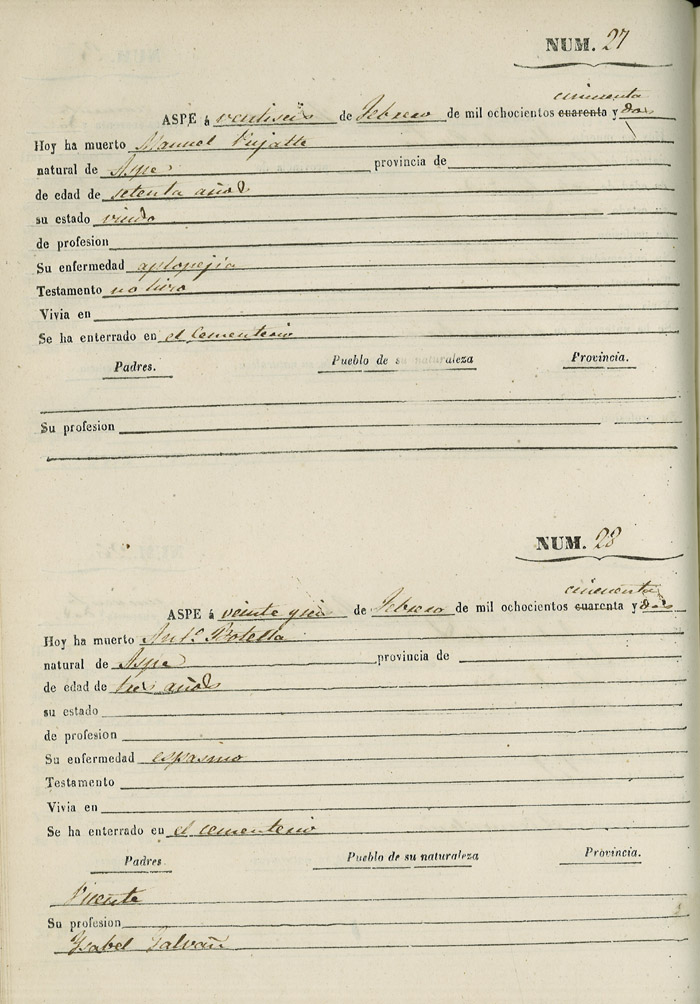 NUM. 27
cincuenta
ASPE á ventiseis de Febrero de mil ochocientos cuarenta y dos
Hoy ha muerto Manuel Pujalte
natural de Aspe provincia de
de edad de setenta años
su estado viudo
de profesion
Su enfermedad aplopejia
Testamento no hizo
Vivia en
Se ha enterrado en el Cementerio
Padres. Pueblo de su naturaleza Provincia.
Su profesion
NUM. 28
cincuenta
ASPE á veinte y seis de Febrero de mil ochocientos cuarenta y dos
Hoy ha muerto Ant.º Botella
natural de Aspe provincia de
de edad de tres años
su estado
de profesion
Su enfermedad espasmo
Testamento
Vivia en
Se ha enterrado en el cementerio
Padres. Pueblo de su naturaleza Provincia.
Vicente
Su profesion
Ysabel Galvañ